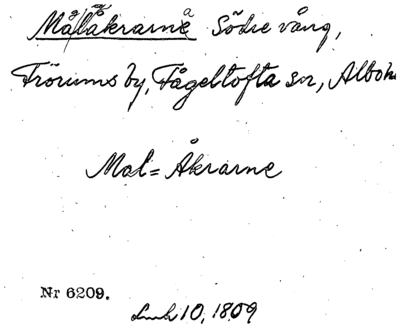 Målåkrarne Södre vång,
Frörums by, Fågeltofta sn, Albo
Mal=Åkrarne
Nr 6209.
10, 1809